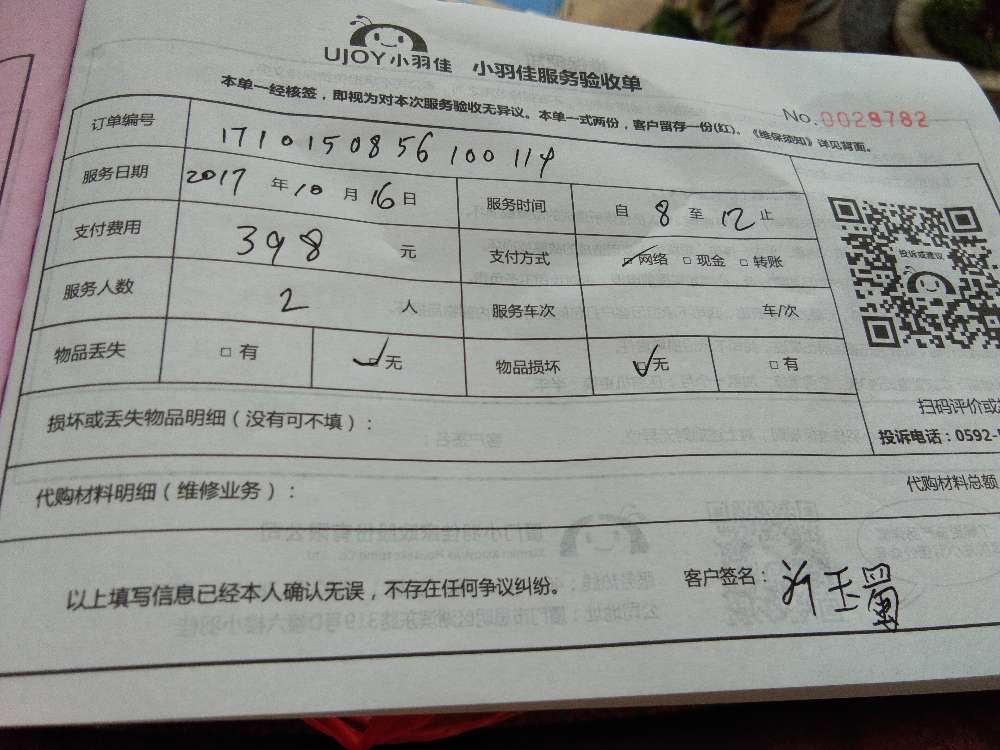 UJOY小羽佳 小羽佳服务验收单
本单一经核签，即视为对本次服务验收无异议。本单一式两份，客户留存一份(红)。《维保须知》详见背面。
No.0028782
订单编号 1710150856100114
服务日期 2017年10月16日 服务时间 自8至12止
支付费用 398元 支付方式 网络 现金 转账
服务人数 2人 服务车次 车/次
物品丢失 有 无 物品损坏 无 有
投诉或建议
扫码评价或
投诉电话：0592-
损坏或丢失物品明细（没有可不填）：
代购材料明细（维修业务）： 代购材料总额
以上填写信息已经本人确认无误，不存在任何争议纠纷。 客户签名：